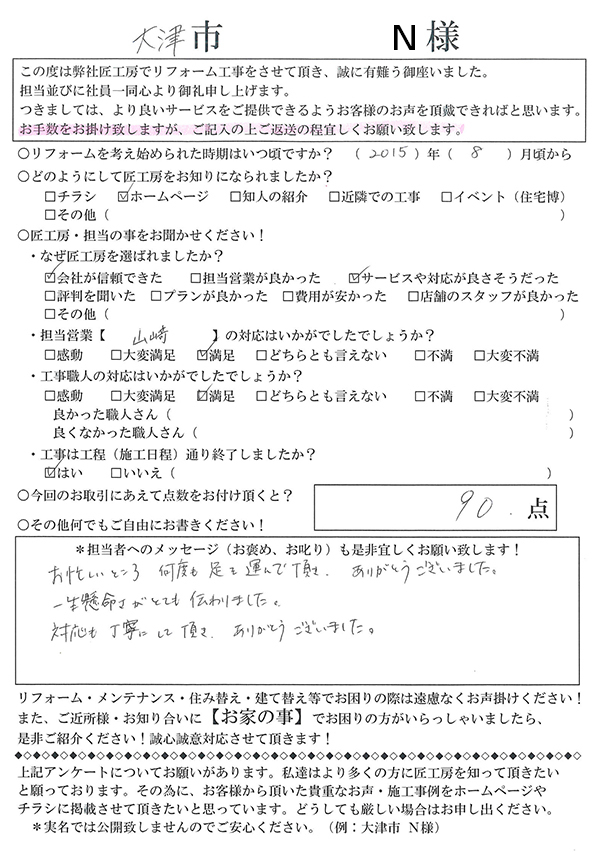 大津市 N様
この度は弊社匠工房でリフォーム工事をさせて頂き、誠に有難う御座いました。
担当並びに社員一同心より御礼申し上げます。
つきましては、より良いサービスをご提供できるようお客様のお声を頂戴できればと思います。
お手数をお掛け致しますが、ご記入の上ご返送の程宜しくお願い致します。
○リフォームを考え始められた時期はいつ頃ですか? (2015)年(8)月頃から
○どのようにして匠工房をお知りになられましたか?
□チラシ ☑ホームページ □知人の紹介 □近隣での工事 □イベント(住宅博)
□その他( )
○匠工房・担当の事をお聞かせください!
・なぜ匠工房を選ばれましたか?
☑会社が信頼できた □担当営業が良かった ☑サービスや対応が良さそうだった
□評判を聞いた □プランが良かった □費用が安かった □店舗のスタッフが良かった
□その他( )
・担当営業【 山崎 】の対応はいかがでしたでしょうか?
□感動 □大変満足 ☑満足 □どちらとも言えない □不満 □大変不満
・工事職人の対応はいかがでしたでしょうか?
□感動 □大変満足 ☑満足 □どちらとも言えない □不満 □大変不満
良かった職人さん( )
良くなかった職人さん( )
・工事は工程(施工日程)通り終了しましたか?
☑はい □いいえ( )
○今回のお取引にあえて点数をお付け頂くと? 90.点
○その他何でもご自由にお書きください!
＊担当者へのメッセージ(お褒め、お叱り)も是非宜しくお願い致します!
お忙しいところ 何度も足を運んで頂き、ありがとうございました。
一生懸命さがとても伝わりました。
対応も丁寧にして頂き、ありがとうございました。
リフォーム・メンテナンス・住み替え・建て替え等でお困りの際は遠慮なくお声掛けください!
また、ご近所様・お知り合いに【お家の事】でお困りの方がいらっしゃいましたら、
是非ご紹介ください!誠心誠意対応させて頂きます!
上記アンケートについてお願いがあります。私達はより多くの方に匠工房を知って頂きたい
と願っております。その為に、お客様から頂いた貴重なお声・施工事例をホームページや
チラシに掲載させて頂きたいと思っています。どうしても厳しい場合はお申し出ください。
＊実名では公開致しませんのでご安心ください。(例:大津市 N様)